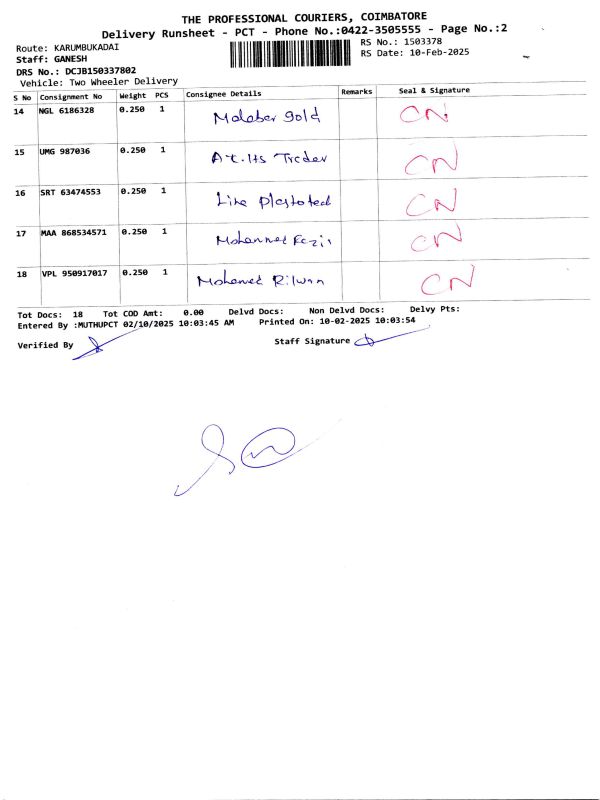 THE PROFESSIONAL COURIERS, COIMBATORE
Delivery Runsheet - PCT - Phone No.:0422-3505555 - Page No.:2
Route: KARUMBUKADAI
RS No.: 1503378
Staff: GANESH
RS Date: 10-Feb-2025
DRS No.: DCJB150337802
Vehicle: Two Wheeler Delivery
S No Consignment No Weight PCS Consignee Details Remarks Seal & Signature
14 NGL 6186328 0.250 1 Malaber gold CN
15 UMG 987036 0.250 1 Treder CN
16 SRT 63474553 0.250 1 Line CN
17 MAA 868534571 0.250 1 CN
18 VPL 950917017 0.250 1 Mohamed Rilwan CN
Tot Docs: 18 Tot COD Amt: 0.00 Delvd Docs: Non Delvd Docs: Delvy Pts:
Entered By :MUTHUPCT 02/10/2025 10:03:45 AM Printed On: 10-02-2025 10:03:54
Verified By Staff Signature